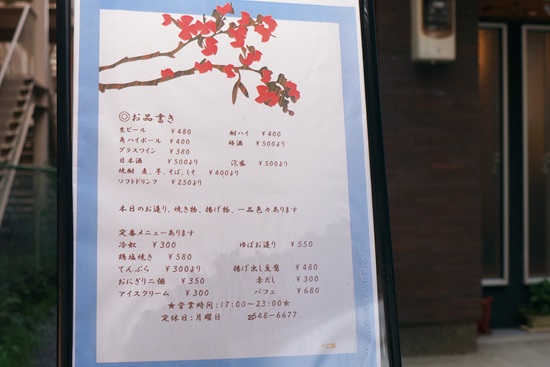 ◎お品書き
生ビール ￥480 酎ハイ ￥400
角ハイボール ￥400 梅酒 ￥500より
グラスワイン ￥380
日本酒 ￥500より 泡盛 ￥500より
焼酎 麦、芋、そば、しそ ￥400より
ソフトドリンク ￥250より
本日のお造り、焼き物、揚げ物、一品色々あります
定番メニューあります
冷奴 ￥300 ゆばお造り ￥550
鶏塩焼き ￥580
てんぷら ￥300より 揚げ出し豆腐 ￥480
おにぎり二個 ￥350 赤だし ￥300
アイスクリーム ￥300 パフェ ￥680
★営業時間:17:00～23:00★
定休日:月曜日 ☎548-6677